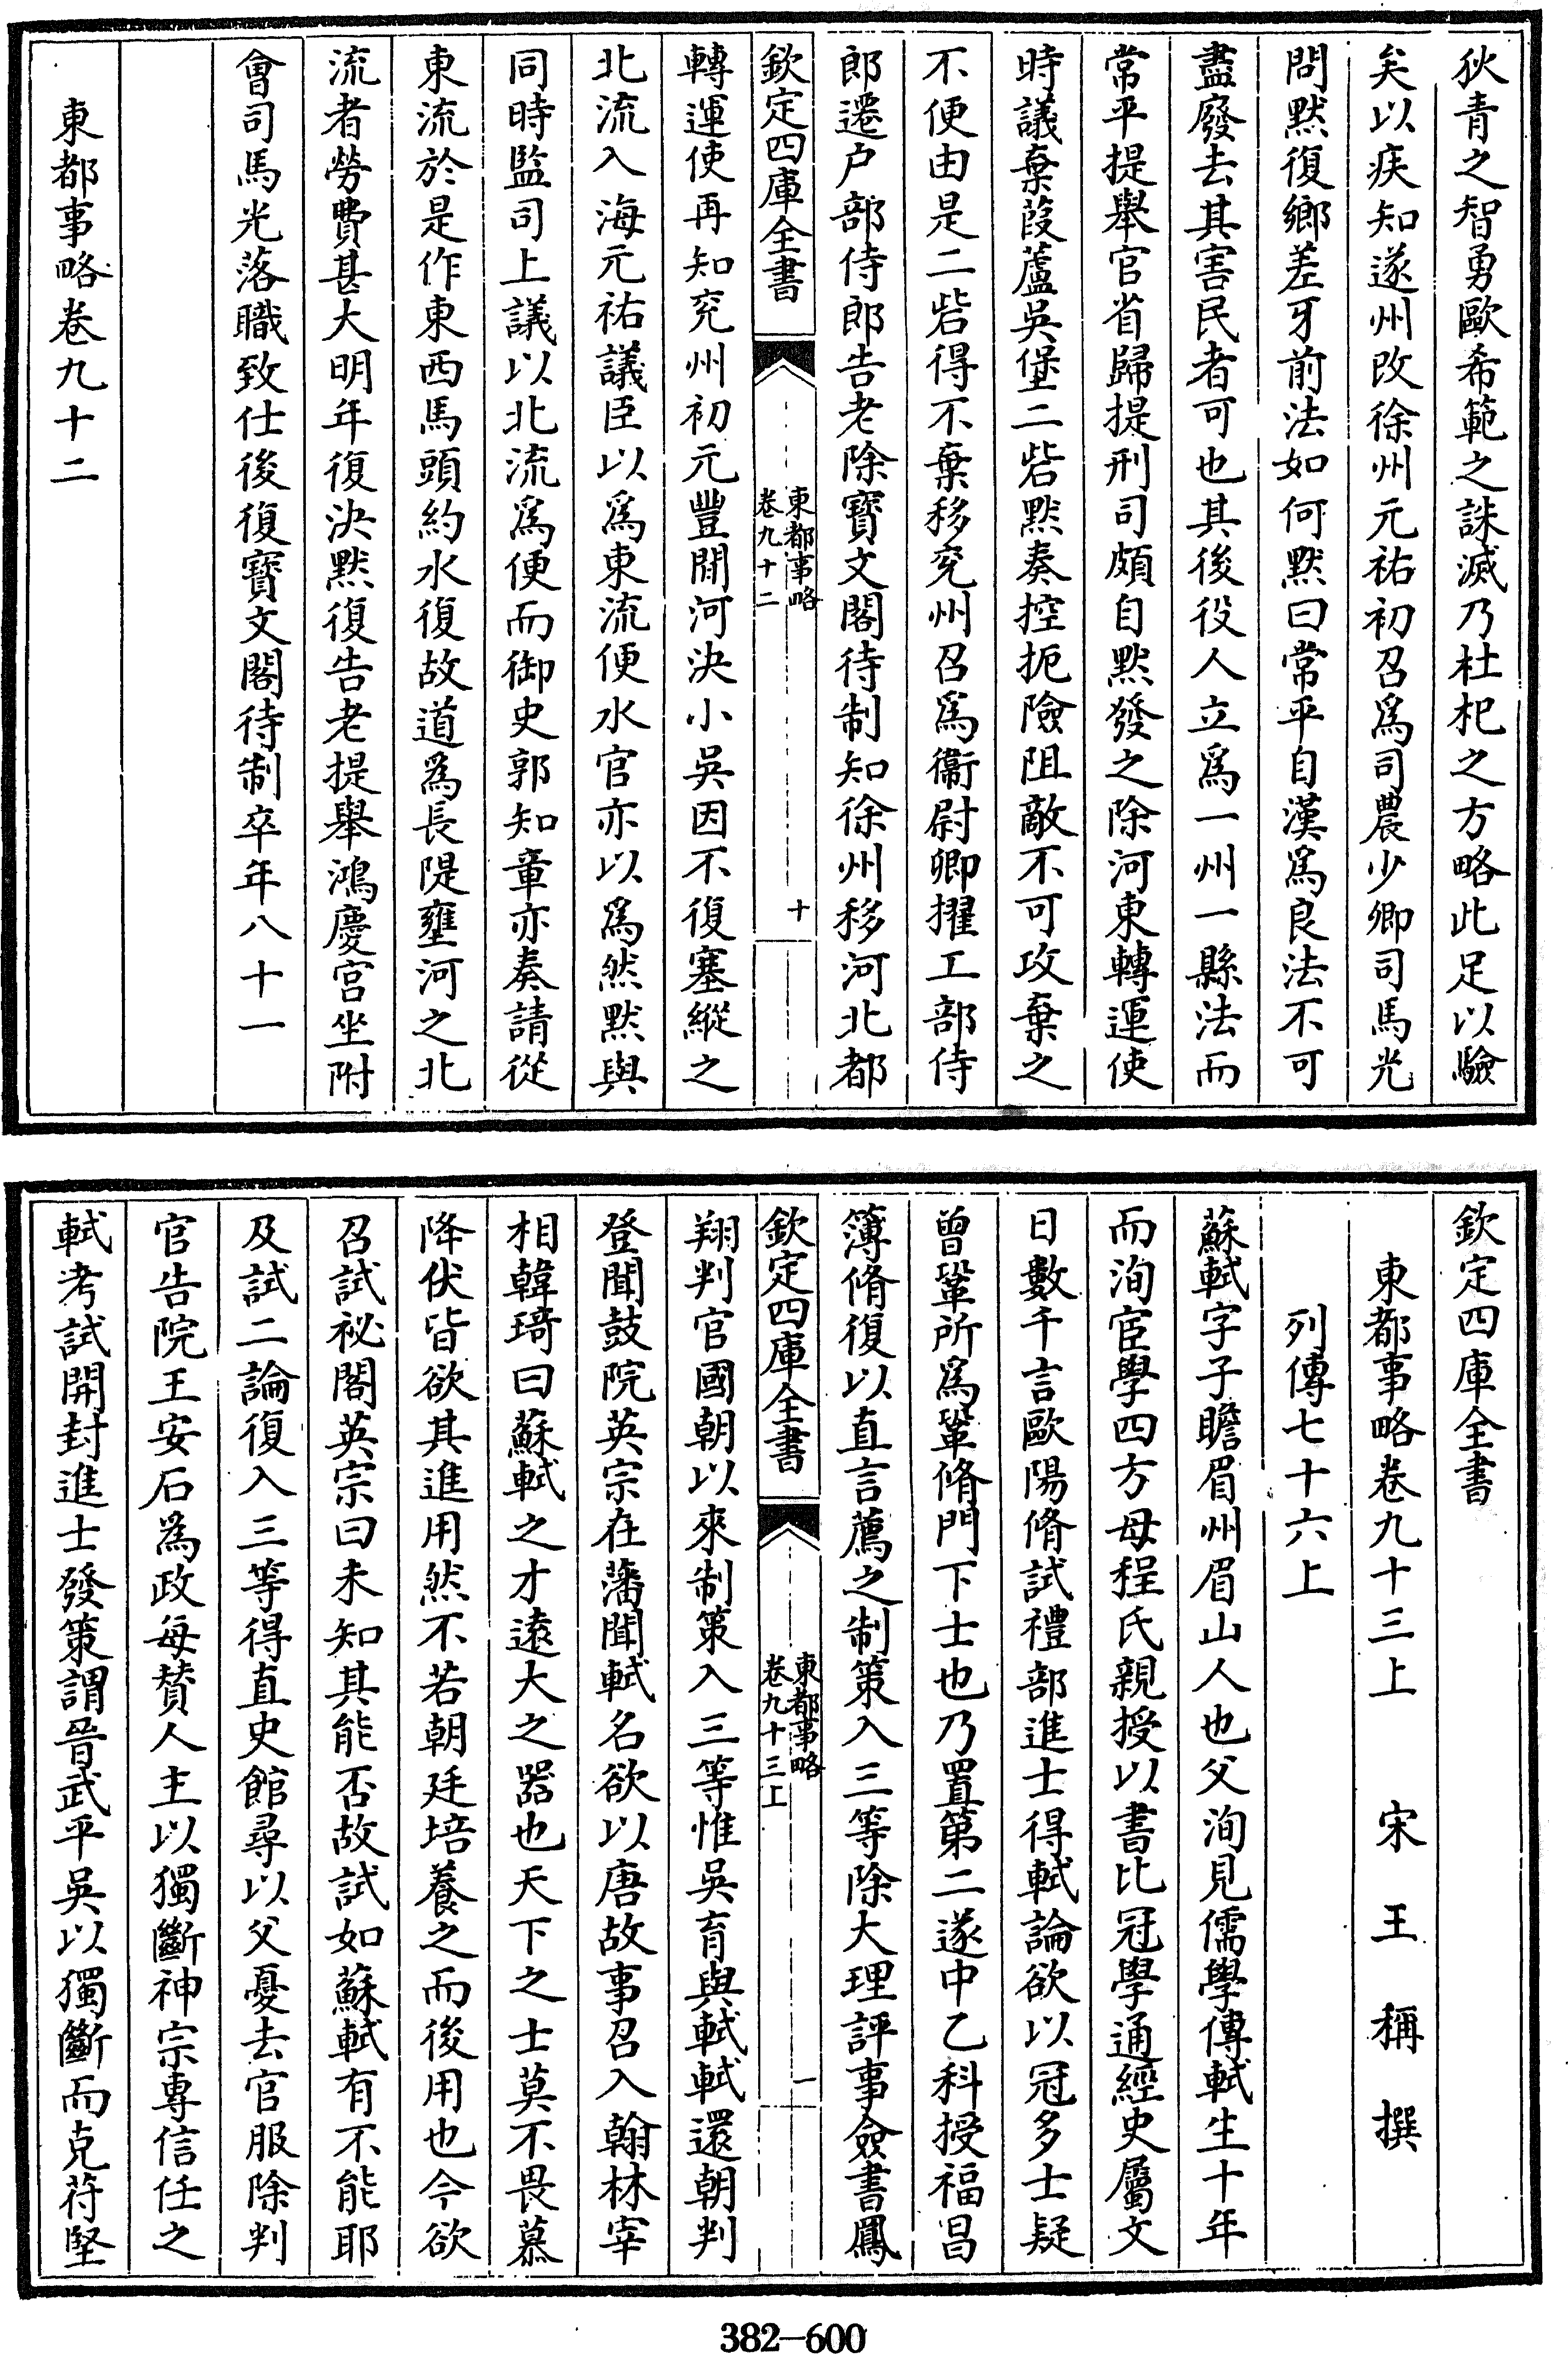 狄青之智勇歐希範之誅滅乃杜杞之方略此足以驗
矣以疾知遂州改徐州元祐初召爲司農少卿司馬光
問默復鄉差牙前法如何默曰常平自漢爲良法不可
盡廢去其害民者可也其後役人立爲一州一縣法而
常平提舉官省歸提刑司頗自默發之除河東轉運使
時議棄葭蘆吳堡二砦默奏控扼險阻敵不可攻棄之
不便由是二砦得不棄移兖州召爲衞尉卿擢工部侍
郎遷户部侍郎告老除寳文閣待制知徐州移河北都
欽定四庫全書
東都事略
卷九十二
十
轉運使再知兖州初元豐間河決小吳因不復塞縱之
北流入海元祐議臣以爲東流便水官亦以爲然默與
同時監司上議以北流爲便而御史郭知章亦奏請從
東流於是作東西馬頭約水復故道爲長隄壅河之北
流者勞費甚大明年復決默復告老提舉鴻慶宫坐附
會司馬光落職致仕後復寳文閣待制卒年八十一
東都事略卷九十二
欽定四庫全書
東都事略卷九十三上 宋 王 稱 撰
列傳七十六上
蘇軾字子瞻眉州眉山人也父洵見儒學傳軾生十年
而洵宦學四方母程氏親授以書比冠學通經史屬文
日數千言歐陽脩試禮部進士得軾論欲以冠多士疑
曾鞏所爲鞏脩門下士也乃置第二遂中乙科授福昌
簿脩復以直言薦之制策入三等除大理評事僉書鳳
欽定四庫全書
東都事略
卷九十三上
一
翔判官國朝以來制策入三等惟吳育與軾軾還朝判
登聞鼓院英宗在藩聞軾名欲以唐故事召入翰林宰
相韓琦曰蘇軾之才遠大之器也天下之士莫不畏慕
降伏皆欲其進用然不若朝廷培養之而後用也今欲
召試祕閣英宗曰未知其能否故試如蘇軾有不能耶
及試二論復入三等得直史館尋以父憂去官服除判
官告院王安石爲政每贊人主以獨斷神宗專信任之
軾考試開封進士發策謂晉武平吳以獨斷而克苻堅
382-600